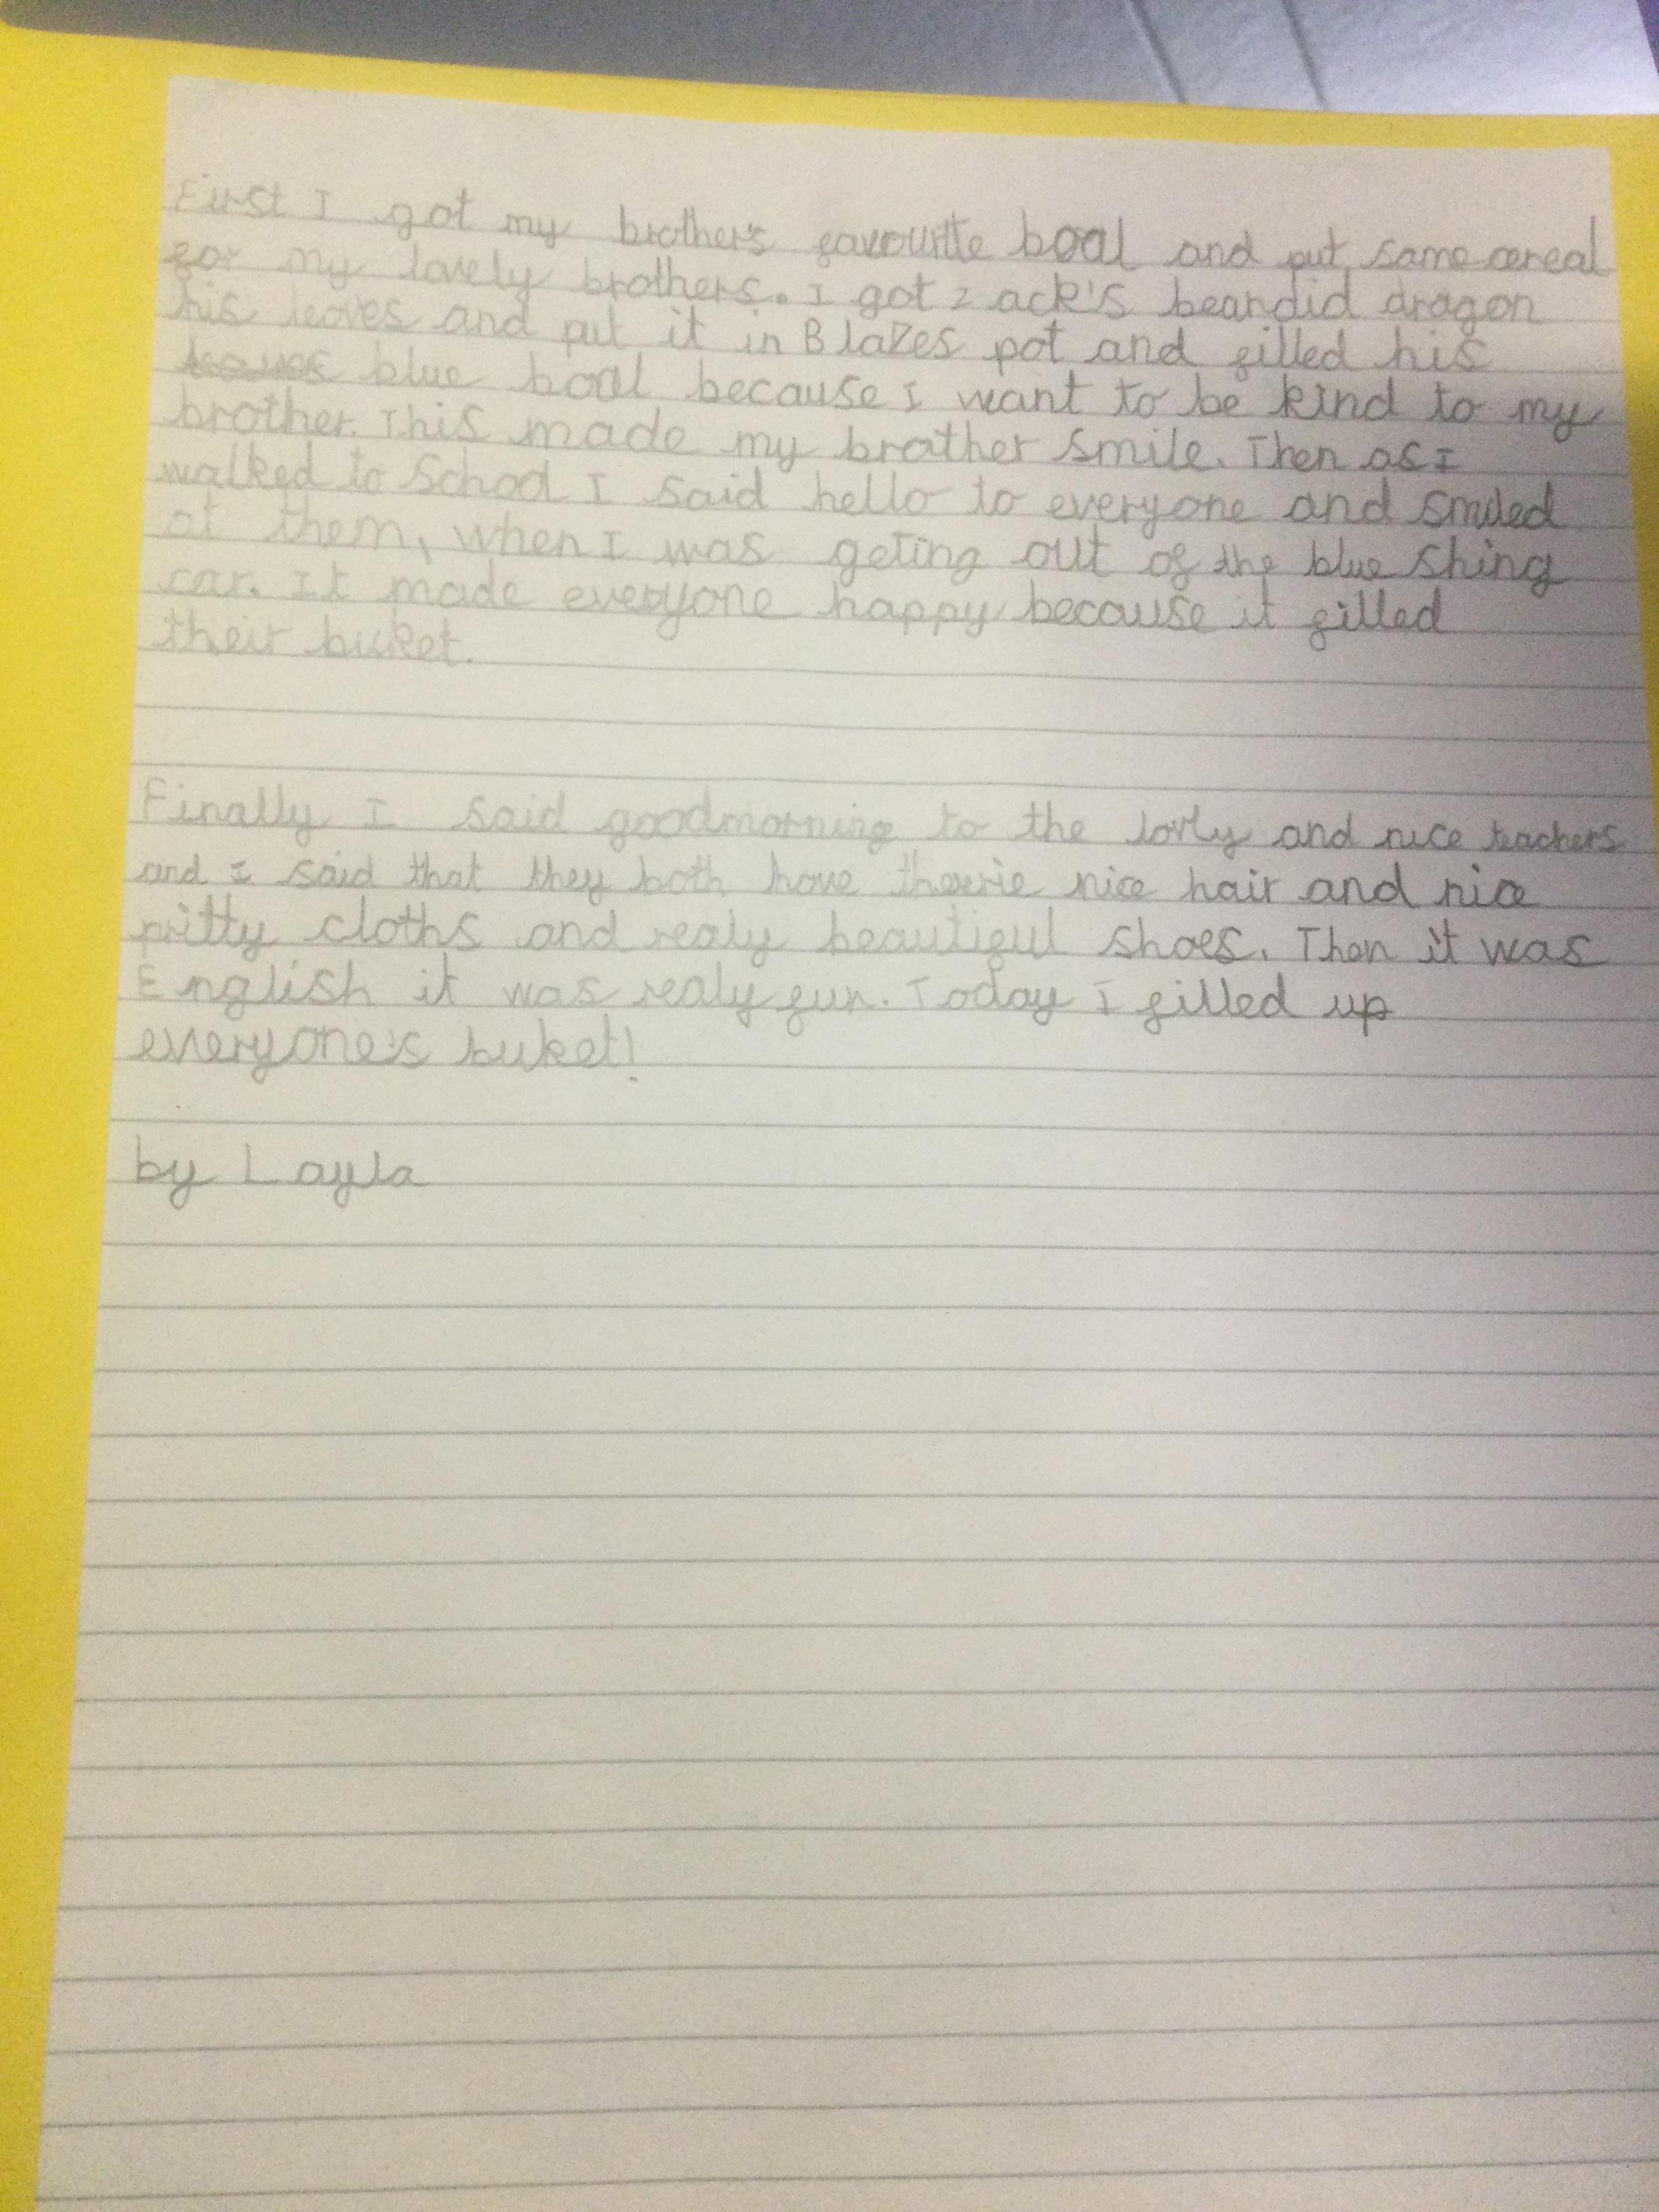 First I got my brother's favourite boal and put some cereal
for my lovely brothers. I got Zack's beardid dragon
his leaves and put it in Blazes pot and filled his
blue boal because I want to be kind to my
brother. This made my brother smile. Then as I
walked to School I said hello to everyone and smiled
at them, when I was geting out of the blue shing
car. It made everyone happy because it filled
their buket.
Finally I said goodmorning to the lovly and nice teachers
and I said that they both have nice hair and nice
pritty cloths and realy beautiful shoes. Then it was
English it was realy fun. Today I filled up
everyone's buket!
by Layla